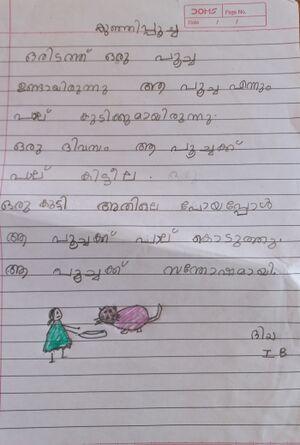 DOMS Page No.
Date / /
കുഞ്ഞിപ്പൂച്ച
ഒരിടത്ത് ഒരു പൂച്ച
ഉണ്ടായിരുന്നു ആ പൂച്ച എന്നും
പാല് കുടിക്കുമായിരുന്നു.
ഒരു ദിവസം ആ പൂച്ചക്ക്
പാല് കിട്ടീല.
ഒരു കുട്ടി അതിലെ പോയപ്പോൾ
ആ പൂച്ചക്ക് പാല് കൊടുത്തു.
ആ പൂച്ചക്ക് സന്തോഷമായി.
ദിയ
I B